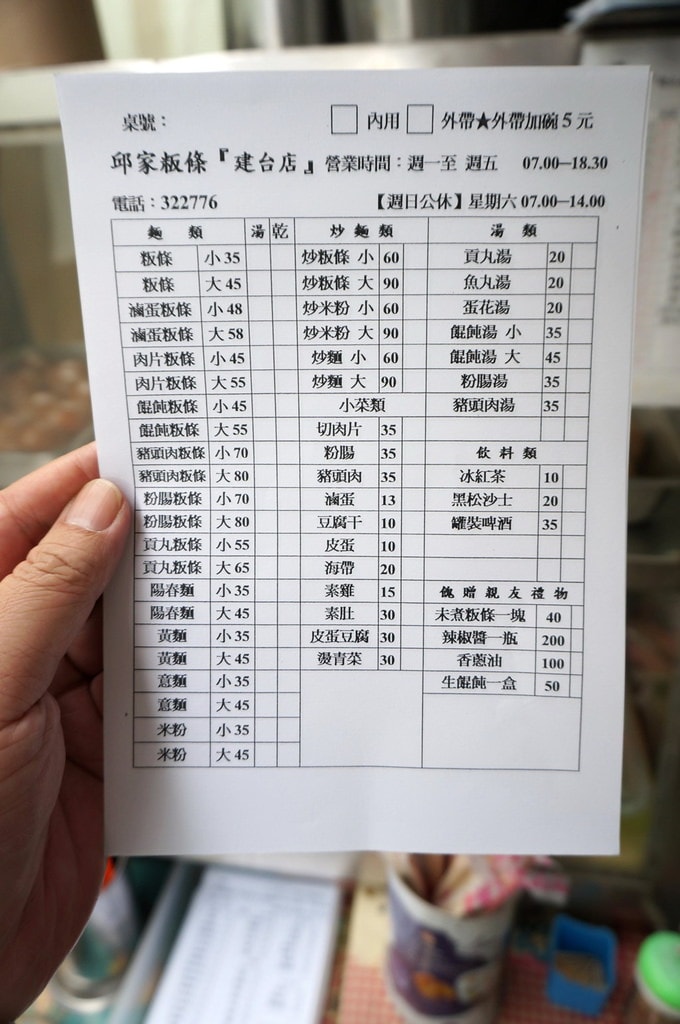 桌號： □ 內用 □ 外帶★外帶加碗 5 元
邱家粄條『建台店』營業時間：週一至 週五 07.00—18.30
電話：322776 【週日公休】星期六 07.00—14.00
麵 類 湯 乾
粄條 小 35
粄條 大 45
滷蛋粄條 小 48
滷蛋粄條 大 58
肉片粄條 小 45
肉片粄條 大 55
餛飩粄條 小 45
餛飩粄條 大 55
豬頭肉粄條 小 70
豬頭肉粄條 大 80
粉腸粄條 小 70
粉腸粄條 大 80
貢丸粄條 小 55
貢丸粄條 大 65
陽春麵 小 35
陽春麵 大 45
黃麵 小 35
黃麵 大 45
意麵 小 35
意麵 大 45
米粉 小 35
米粉 大 45
炒 麵 類
炒粄條 小 60
炒粄條 大 90
炒米粉 小 60
炒米粉 大 90
炒麵 小 60
炒麵 大 90
小菜類
切肉片 35
粉腸 35
豬頭肉 35
滷蛋 13
豆腐干 10
皮蛋 10
海帶 20
素雞 15
素肚 30
皮蛋豆腐 30
燙青菜 30
湯 類
貢丸湯 20
魚丸湯 20
蛋花湯 20
餛飩湯 小 35
餛飩湯 大 45
粉腸湯 35
豬頭肉湯 35
飲 料 類
冰紅茶 10
黑松沙士 20
罐裝啤酒 35
餽 贈 親 友 禮 物
未煮粄條一塊 40
辣椒醬一瓶 200
香蔥油 100
生餛飩一盒 50